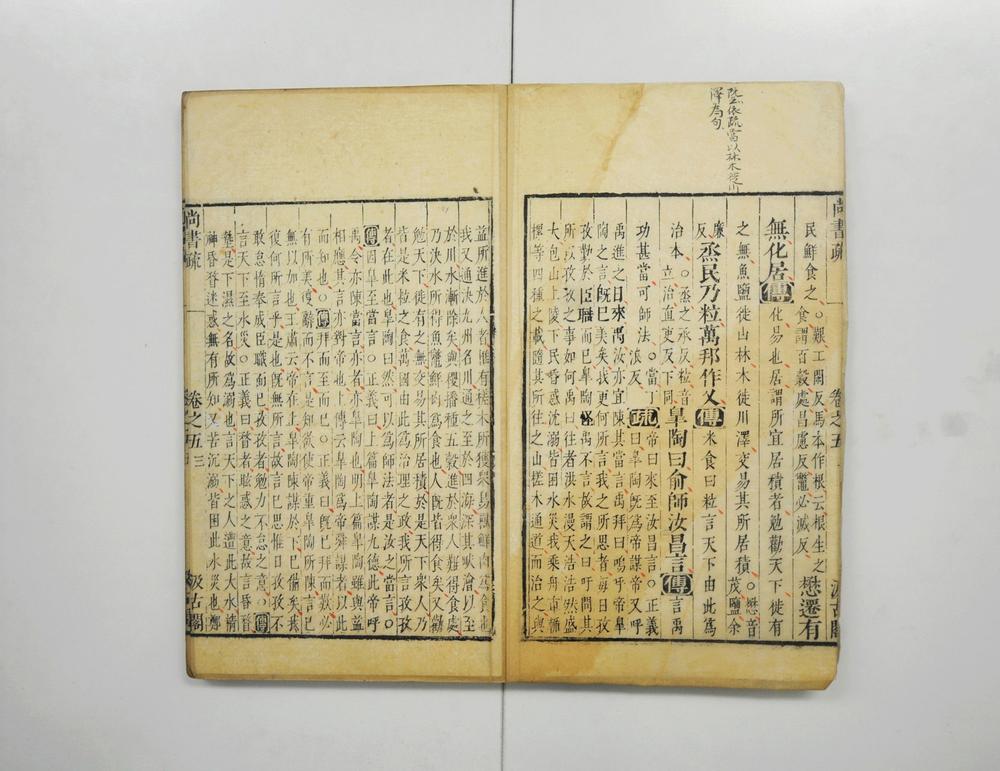 依疏當以林木徙川
澤為句
尚書疏 卷之五 汲古閣
民鮮食之。艱工閑反馬本作根云根生之
食謂百穀處昌慮反鼈必滅反 懋遷有
無化居傳化易也居謂所宜居積者勉勸天下徙有
之無魚鹽徙山林木徙川澤交易其所居積。懋音茂鹽余
廉反烝民乃粒萬邦作乂傳米食曰粒言天下由此爲
治本。烝之承反粒音立治直吏反下同皐陶曰俞師汝昌言傳言禹
功甚當可師法。當丁浪反疏帝曰來至汝昌言。正義曰皐陶旣爲帝謀帝又呼
禹進之曰來禹汝亦宜陳其當言禹拜曰嗚呼帝皐
陶之言旣已美矣我更何所言我之所思者每日孜
孜勤於臣職而已皐陶怪禹不言故謂之曰吁問其
所以孜孜之事如何禹曰往者洪水漫天浩浩然盛
大包山上陵下民昏惑沈溺皆困水災我乘舟車輴
樏等四種之載隨其所往之山槎木通道而治之與
益所進於人者惟有槎木所獲衆鳥獸鮮肉爲食也
我又通決九州名川通之至於四海深其畎澮以至
於川水漸除矣與稷播種五穀進於衆人難得食處
乃決水所得魚鼈鮮肉爲食也人旣皆得食矣又勸
勉天下徙有之無交易其所居積於是天下衆人乃
皆是米粒之食萬國由此爲治理之政我所言孜孜
者在此也皐陶曰然可以爲師法者是汝之當言。
傳因皐至當言。正義曰上篇皐陶謀九德此帝呼
禹令亦陳當言亦者亦皐陶也明上篇皐陶雖與益
相應其言亦對帝也上傳云皐陶爲帝舜謀者以此
而知也。傳拜而至而已。正義曰旣已拜而歎必
有所美復辭而不言是知欲使帝重皐陶所陳言已
無以加也王肅云帝在上皐陶陳謀於下已備矣我
復何所言乎是也旣無所言故言已思惟日孜孜不
敢怠惰奉成臣職而已孜孜者勉力不怠之意。傳
言天下至水災。正義曰昏者眊惑之意故言昏昏
墊是下濕之名故爲溺也言天下之人遭此大水精
神昏瞀迷惑無有所知又若沉溺皆困此水災也鄭
尚書疏 卷之五 三 汲古閣